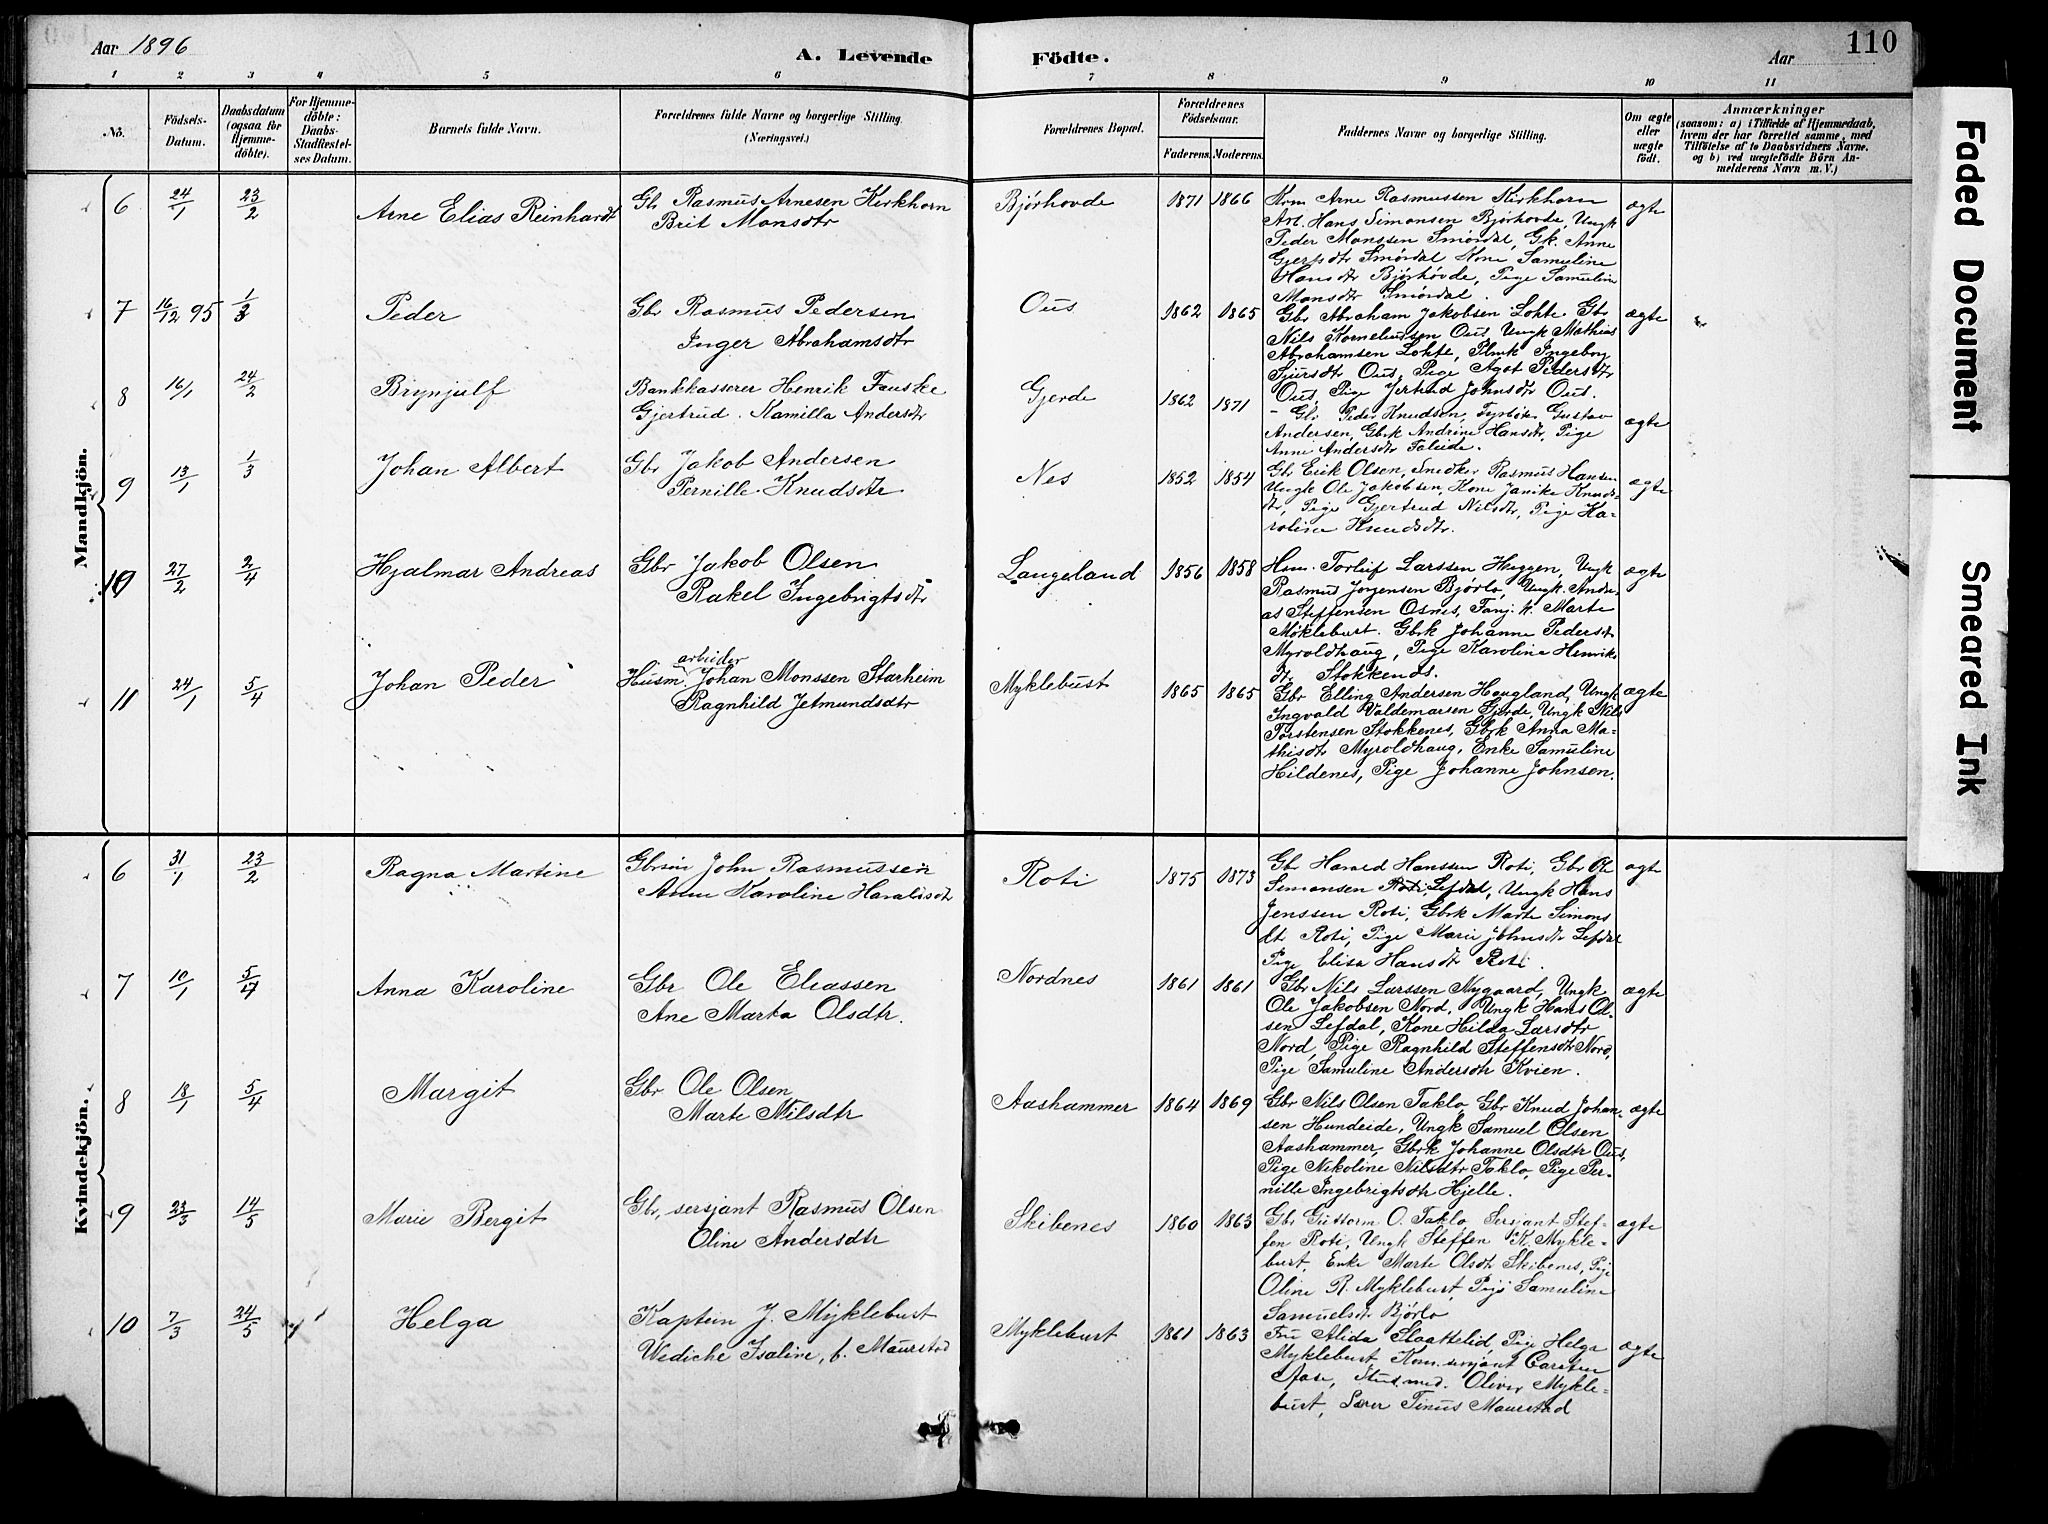 Aar 1896
A. Levende
Födte.
Aar
110
1 2 3 4 5 6 7 8 9 10 11
No.
Födsels-
Datum.
Daabsdatum
(ogsaa for
Hjemme-
döbte).
For Hjemme-
döbte:
Daabs-
Stadfæstel-
ses Datum.
Barnets fulde Navn.
Forældrenes fulde Navne og borgerlige Stilling.
(Næringsvei.)
Forældrenes Bopæl.
Forældrenes
Födselsaar.
Faderens. Moderens.
Faddernes Navne og borgerlige Stilling.
Om ægte
eller
uægte
födt.
Anmærkninger
(saasom: a) i Tilfælde af Hjemmedaab,
hvem der har forrettet samme, med
Tilföielse af to Daabsvidners Navne.
og b) ved uægtefödte Börn An-
melderens Navn m. V.)
Mandkjön.
6 24/1 23/2 Arne Elias Reinhardt
Gbr Rasmus Arnesen Kirkhorn
Brit Monsdtr
Bjørhovde 1871 1866
Kom Arne Rasmussen Kirkhorn
Arb. Hans Simonsen Bjørhovde, Ungk
Peder Monssen Smørdal, Gk. Anne
Gjertsdtr Smørdal Kone Samuline
Hansdtr Bjørhovde, Pige Samuline
Monsdtr Smørdal.
ægte
7 16/12 95 1/3 Peder
Gbr Rasmus Pedersen
Inger Abrahamsdtr
Ous 1862 1865
Gbr Abraham Jakobsen Lofte Gbr
Nils Korneliussen Ous, Ungk Mathias
Abrahamsen Lofte, Plmk Ingeborg
Siursdtr Ous, Pige Agot Pedersdtr
Ous, Pige Jertrud Johnsdtr Ous.
ægte
8 16/1 24/2 Brynjulf
Bankkasserer Henrik Fauske
Gjertrud Kamilla Andersdtr
Gjerde 1862 1871
- Gbr Peder Knudsen, Fyrbøter Gustav
Andersen, Gbrk Andrine Hansdtr, Pige
Anne Andersdtr Taleide.
ægte
9 13/1 1/3 Johan Albert
Gbr Jakob Andersen
Pernille Knudsdtr
Nes 1852 1854
Gbr Erik Olsen, Snedker Rasmus Hansen
Ungk Ole Jakobsen, Kone Janike Knuds-
dtr, Pige Gjertrud Nilsdtr, Pige Ka-
roline Knudsdtr.
ægte
10 27/2 2/4 Hjalmar Andreas
Gbr Jakob Olsen
Rakel Ingebrigtsdtr
Langeland 1856 1858
Hm. Torleif Larssen Huggen, Ungk
Rasmus Jørgensen Bjørlo, Ungk. Andre-
as Steffensen Osnes, Fanj.k. Marte
Møklebust. Gbrk Johanne Pedersdtr
Myroldhaug, Pige Karoline Henriks
dtr Stokkenes.
ægte
11 24/1 5/4 Johan Peder
arbeider
Husm. Johan Monssen Starheim
Ragnhild Jetmundsdtr
Myklebust 1865 1865
Gbr Elling Andersen Hougland, Ungk
Ingvald Valdemarsen Gjerde, Ungk Nils
Torstensen Stokkenes, Gbrk Anna Ma-
thisdtr Myroldhaug, Enke Samuline
Hildenes, Pige Johanne Johnsen.
ægte
Kvindekjön.
6 31/1 23/2 Ragna Martine
Gbrsøn John Rasmussen
Anne Karoline Haraldsdtr
Roti 1875 1873
Gbr Harald Hanssen Roti, Gbr Ole
Simonsen Lefdal, Ungk Hans
Jenssen Roti, Gbrk Marte Simons
dtr Roti, Pige Marie Johnsdtr Lefdal
Pige Elisa Hansdtr Roti.
ægte
7 10/1 5/4 Anna Karoline
Gbr Ole Eliassen
Ane Marta Olsdtr.
Nordnes 1861 1861
Gbr Nils Larssen Nygaard, Ungk
Ole Jakobsen Nord, Ungk Hans Ol-
sen Lefdal, Kone Hilda Larsdtr
Nord, Pige Ragnhild Steffensdtr Nord,
Pige Samuline Andersdtr Kvien.
ægte
8 18/1 5/4 Margit
Gbr Ole Olsen
Marte Nilsdtr
Aashammer 1864 1869
Gbr Nils Olsen Taklo, Gbr Knud Johan-
sen Hundeide, Ungk Samuel Olsen
Aashammer, Gbrk Johanne Olsdtr Ous,
Pige Nikoline Nilsdtr Taklo, Pige Per-
nille Ingebrigtsdtr Hjelle.
ægte
9 22/3 14/5 Marie Bergit
Gbr, sersjant Rasmus Olsen
Oline Andersdtr
Skibenes 1860 1863
Gbr Guttorm O. Taklo, Sersjant Stef-
fen Roti, Ungk Steffen K. Mykle-
bust, Enke Marte Olsdtr Skibenes, Pige
Oline R. Myklebust, Pige Samuline
Samuelsdtr Bjørlo
ægte
10 7/3 24/5 Helga
Kaptein J. Myklebust
Wediche Isaline, f. Maurstad
Myklebust 1861 1863
Fru Alida Slaattelid, Pige Helga
Myklebust Kom.sersjant Carsten
Aase, Stud.med. Oliver Mykle-
bust, Lærer Tinus Maurstad
ægte
Faded Document
Smeared Ink